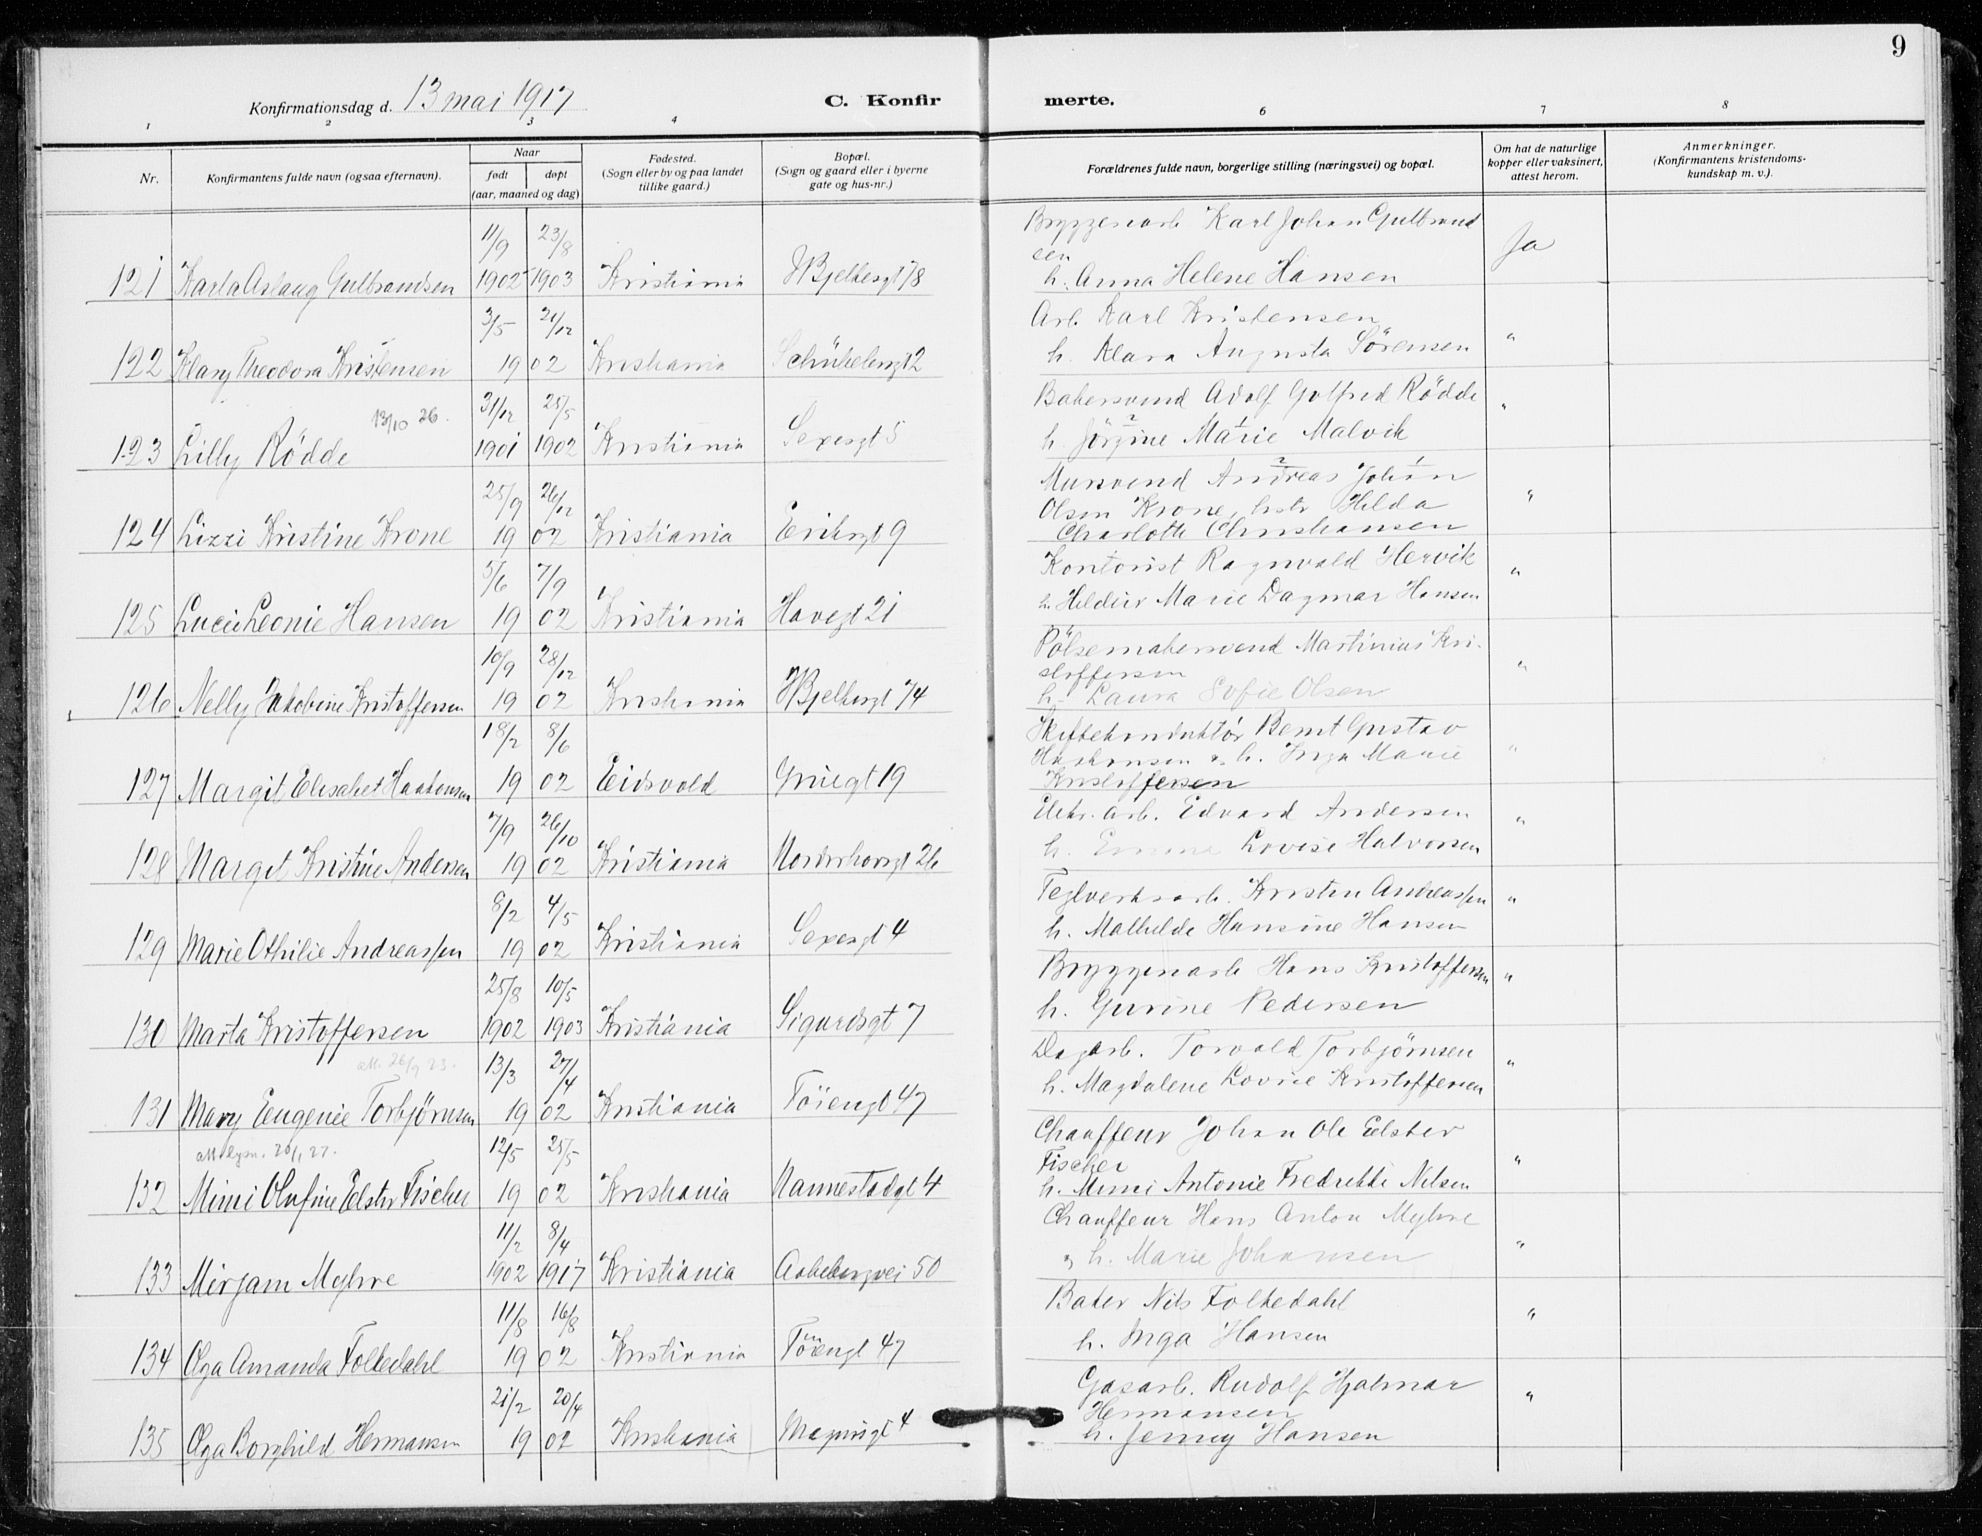 9
Konfirmationsdag d. 13 mai 1917
C. Konfir merte.
1 2 3 4 6 7 8
Nr. Konfirmantens fulde navn (ogsaa efternavn). Naar født døpt (aar, maaned og dag) Fødested. (Sogn eller by og paa landet tillike gaard.) Bopæl. (Sogn og gaard eller i byerne gate og hus-nr.) Forældrenes fulde navn, borgerlige stilling (næringsvei) og bopæl. Om hat de naturlige kopper eller vaksinert, attest herom. Anmerkninger. (Konfirmantens kristendomskundskap m. v.).
11/9 23/8 Bryggeriarb Karl Johan Gulbrand
sen Ja
121 Karla Aslaug Gulbrandsen 1902 1903 Kristiania Hjelbergt 78 h. Anna Helene Hansen
3/5 21/12 Arb. Karl Kristensen
122 Klary Theodora Kristensen 19 02 Kristiania Schübelergt 2 h. Klara Augusta Sörensen "
13/10 26. 31/12 25/5 Bakersvend Adolf Gotfred Rödde "
123 Lilly Rödde 1901 1902 Kristiania Sexesgt 5 h. Jörgine Marie Malvik
25/9 26/12 Mursvend Andreas Johan
Olsen Krone, hstr Hilda "
124 Lizzi Kristine Krone 19 02 Kristiania Eriksgt 9 Charlotte Christiansen
5/6 7/9 Kontorist Ragnvald Hervik "
125 Lucie Leonie Hansen 19 02 Kristiania Havegt 21 Marie Dagmar Hansen
10/9 28/12 Pölsemakersvend Martinius Kri-
stoffersen "
126 Nelly Jakobine Kristoffersen 19 02 Kristiania Hjelbergt 74 h. Laura Sofie Olsen
18/2 8/6 Skiftekonduktör Bernt Gustav
Haakonsen h. Inga Marie "
127 Margit Elisabet Haakonsen 19 02 Eidsvold Griegt 19 Kristoffersen
7/9 26/10 Elektr. arb. Edvard Andersen "
128 Margit Kristine Andersen 19 02 Kristiania Norderhovgt 26 h. Emma Lovise Halvorsen
8/2 4/5 Teglverksarb. Kristen Andreassen "
129 Marie Othilie Andreassen 19 02 Kristiania Sexesgt 4 h. Mathilde Hansine Hansen
25/8 10/5 Bryggeriarb Hans Kristoffersen "
130 Marta Kristoffersen 1902 1903 Kristiania Sigurdsgt 7 h. Gurine Pedersen
att. 26/9 23. 13/3 27/4 Dagarb. Torvald Torbjörnsen "
131 Mary Eugenie Torbjörnsen 19 02 Kristiania Töiengt 47 h. Magdalene Lovise Kristoffersen
att lysn. 20/1 27. 12/5 25/5 Chauffeur Johan Ole Elster
Fischer "
132 Mimi Olufine Elster Fischer 19 02 Kristiania Nannestadgt 4 h. Mimi Antonie Fredrikke Nilsen
11/2 8/4 Chauffeur Hans Anton Myhre
133 Mirjam Myhre 1902 1917 Kristiania Aakebergvei 50 h. Marie Johansen "
11/8 16/8 Baker Nils Folkedahl "
134 Olga Amanda Folkedahl 19 02 Kristiania Töiengt 47 h. Inga Hansen
21/2 20/4 Gasarb. Rudolf Hjalmar "
Hermansen
135 Olga Borghild Hermansen 19 02 Kristiania Magnusgt 4 h. Jenny Hansen